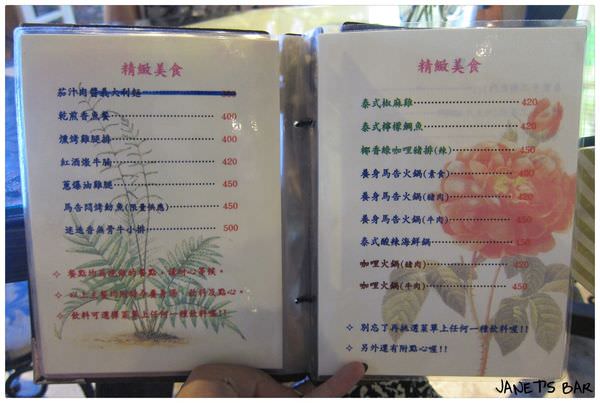 精緻美食
茄汁肉醬義大利麵
乾煎香魚餐 400
燻烤雞腿排 400
紅酒燉牛腩 420
蔥爆油雞腿 450
馬告悶烤魴魚(限量供應) 450
迷迭香無骨牛小排 500
✧ 餐點均為現做的餐點，請耐心等候。
✧ 以上主餐均附特全養身湯、飲料及點心。
✧ 飲料可選擇菜單上任何一種飲料喔!!
精緻美食
泰式椒麻雞 420
泰式檸檬鯛魚 420
椰香綠咖哩豬排(辣) 450
養身馬告火鍋(素食) 400
養身馬告火鍋(豬肉) 420
養身馬告火鍋(牛肉) 450
泰式酸辣海鮮鍋 450
咖哩火鍋(豬肉) 420
咖哩火鍋(牛肉) 450
✧ 別忘了再挑選菜單上任何一種飲料喔!!
✧ 另外還有附點心喔!!
JANET'S BAR